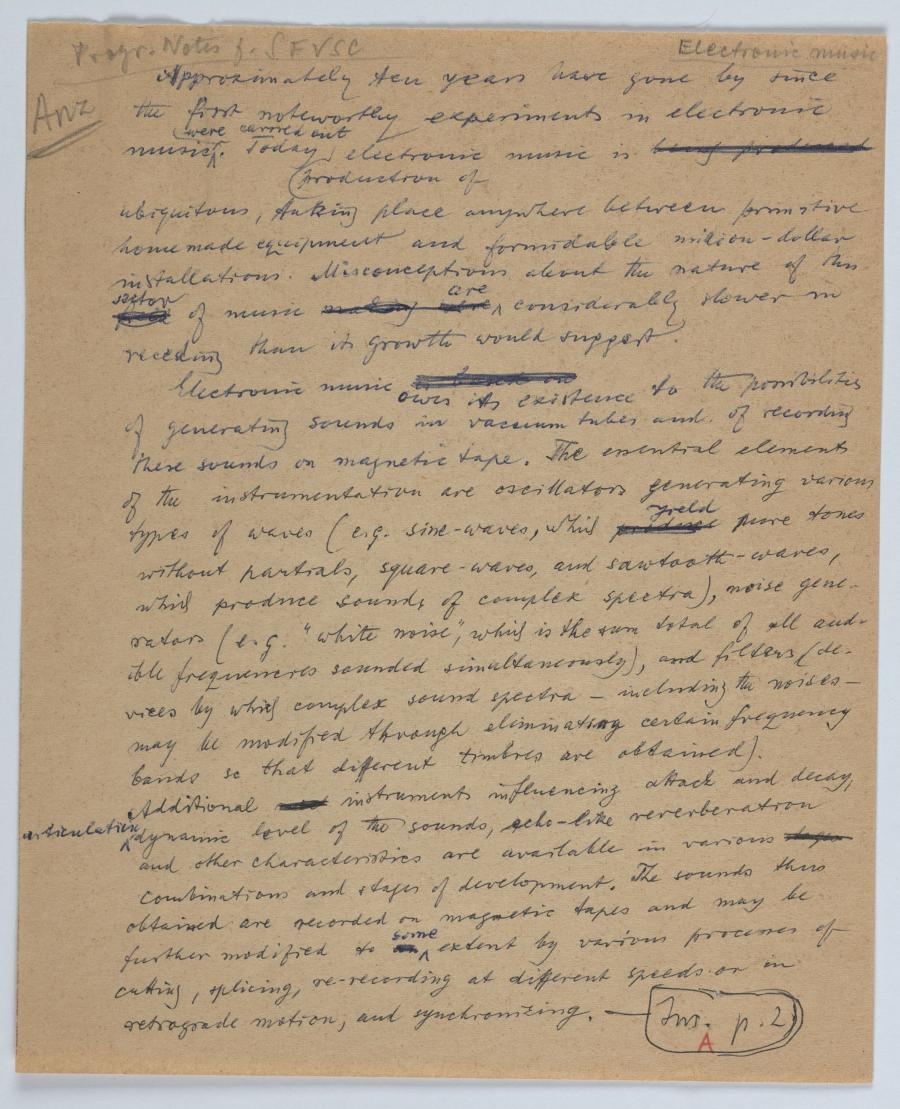 Progr. Notes f. SFVSC
Electronic music
Approximately ten years have gone by since
Anz
the first noteworthy experiments in electronic
were carried out
music. Today electronic music is being produced
production of
ubiquitous, taking place anywhere between primitive
homemade equipment and formidable million-dollar
installations. Misconceptions about the nature of this
sector are
field of music making were considerably slower in
receding than its growth would suggest.
Electronic music is based on
owes its existence to the possibilities
of generating sounds in vacuum tubes and of recording
these sounds on magnetic tape. The essential elements
of the instrumentation are oscillators generating various
yield
types of waves (e.g. sine-waves, which produce pure tones
without partials, square-waves, and sawtooth-waves,
which produce sounds of complex spectra), noise gene-
rators (e.g. "white noise", which is the sum total of all aud-
ible frequencies sounded simultaneously), and filters (de-
vices by which complex sound spectra – including the noises –
may be modified through eliminating certain frequency
bands so that different timbres are obtained).
Additional instruments influencing attack and decay,
articulation,
dynamic level of the sounds, echo-like reverberation
and other characteristics are available in various
combinations and stages of development. The sounds thus
obtained are recorded on magnetic tapes and may be
some
further modified to an extent by various processes of
cutting, splicing, re-recording at different speeds or in
retrograde motion, and synchronizing. — Ins. p. 2
A